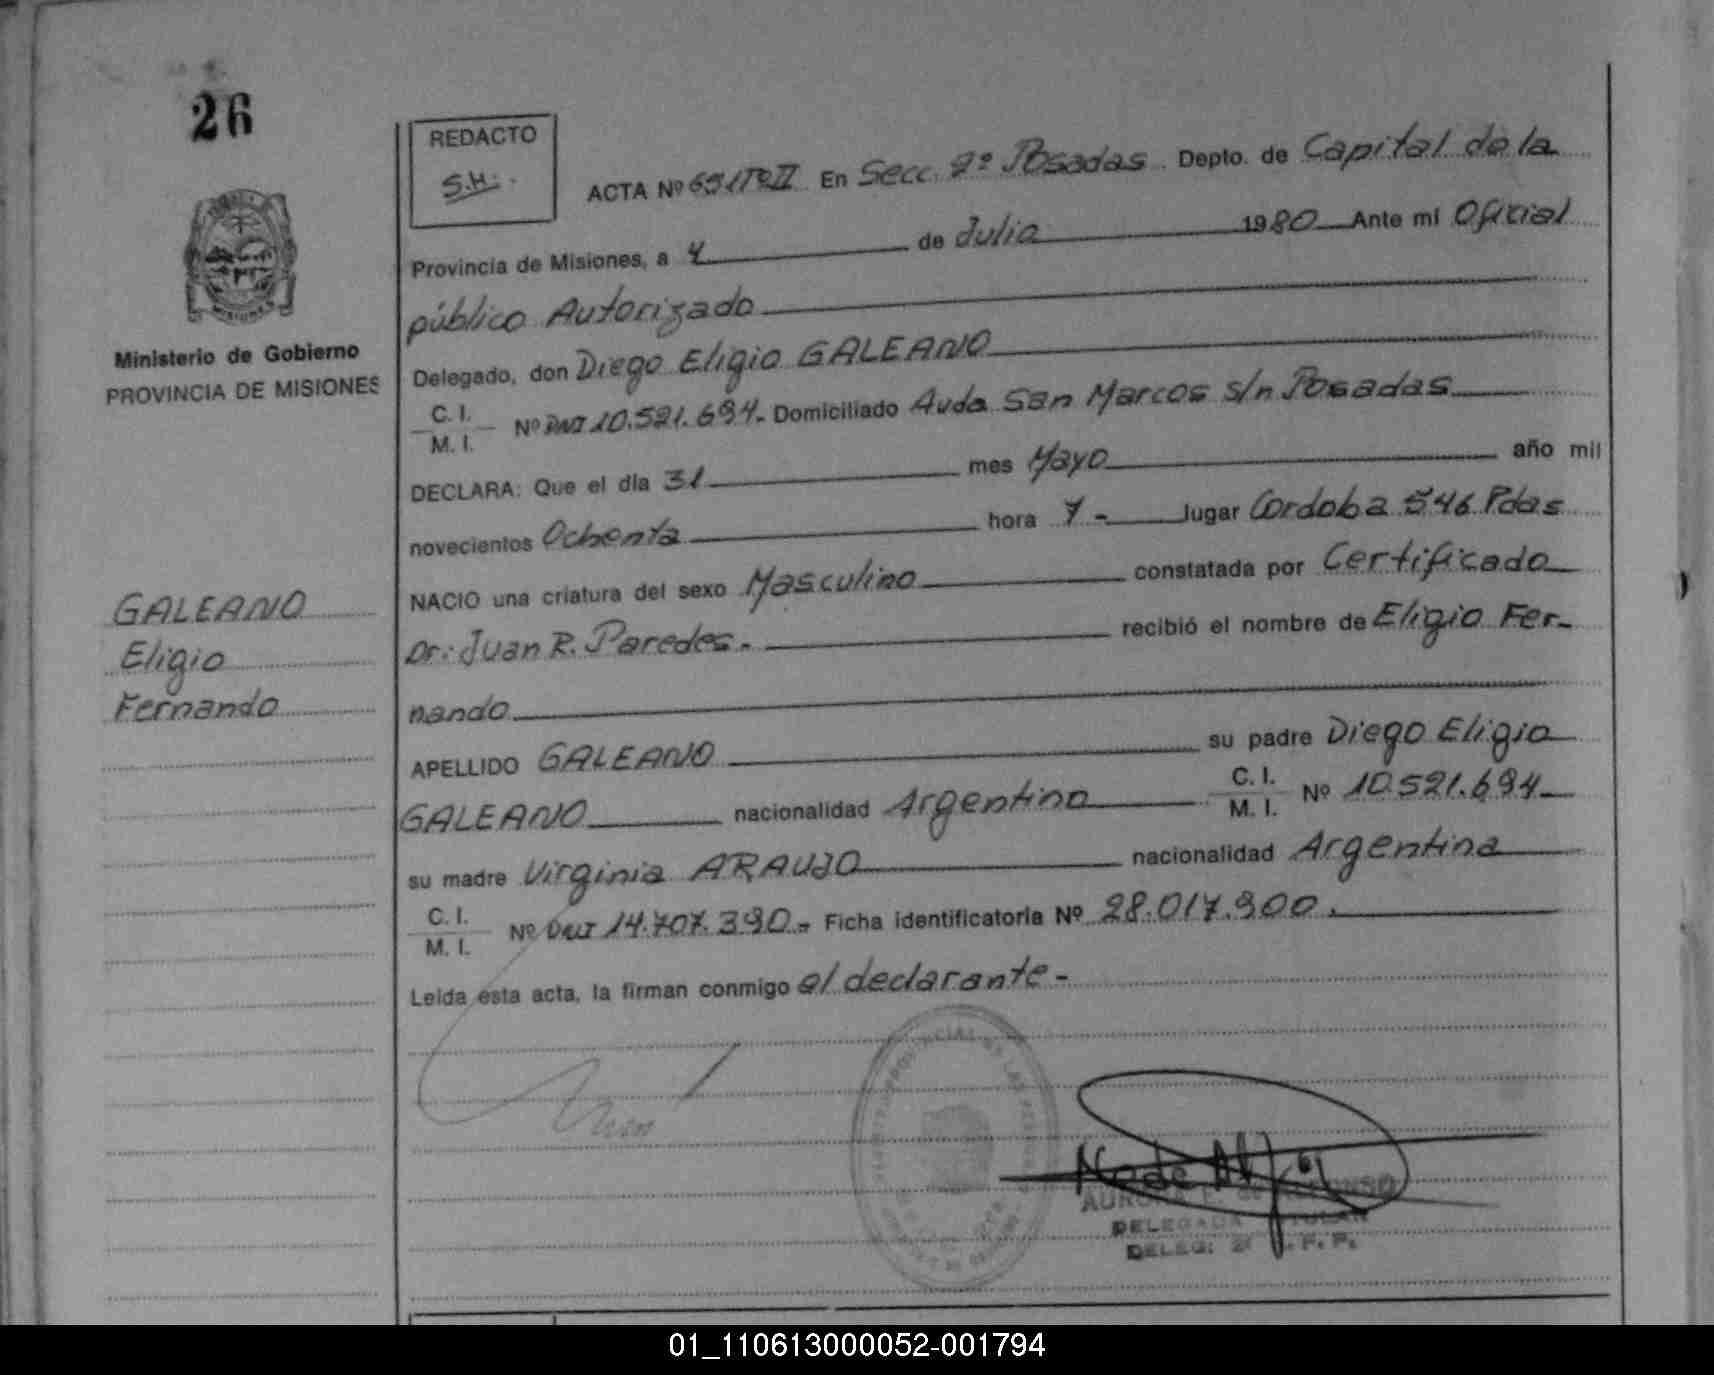 26
REDACTO
S.H.
ACTA Nº 651TºII En Secc. 2º Posadas Depto. de Capital de la
Provincia de Misiones, a 4 de Julio 1980 Ante mi Oficial
público Autorizado
Delegado, don Diego Eligio GALEANO
C. I.
M. I. Nº DNI 10.521.694.- Domiciliado Avda San Marcos s/n Posadas
DECLARA: Que el día 31 mes Mayo año mil
novecientos Ochenta hora 7 - lugar Cordoba 546 Pdas
NACIO una criatura del sexo Masculino constatada por Certificado
Dr: Juan R. Paredes.- recibió el nombre de Eligio Fer-
nando
APELLIDO GALEANO su padre Diego Eligio
GALEANO nacionalidad Argentino C. I.
M. I. Nº 10.521.694
su madre Virginia ARAUJO nacionalidad Argentina
C. I.
M. I. Nº DNI 14.707.390.- Ficha identificatoria Nº 28.017.900.
Leida esta acta, la firman conmigo el declarante -
Ministerio de Gobierno
PROVINCIA DE MISIONES
GALEANO
Eligio
Fernando
DELEGADA TITULAR
DELEG: 2
01_110613000052-001794